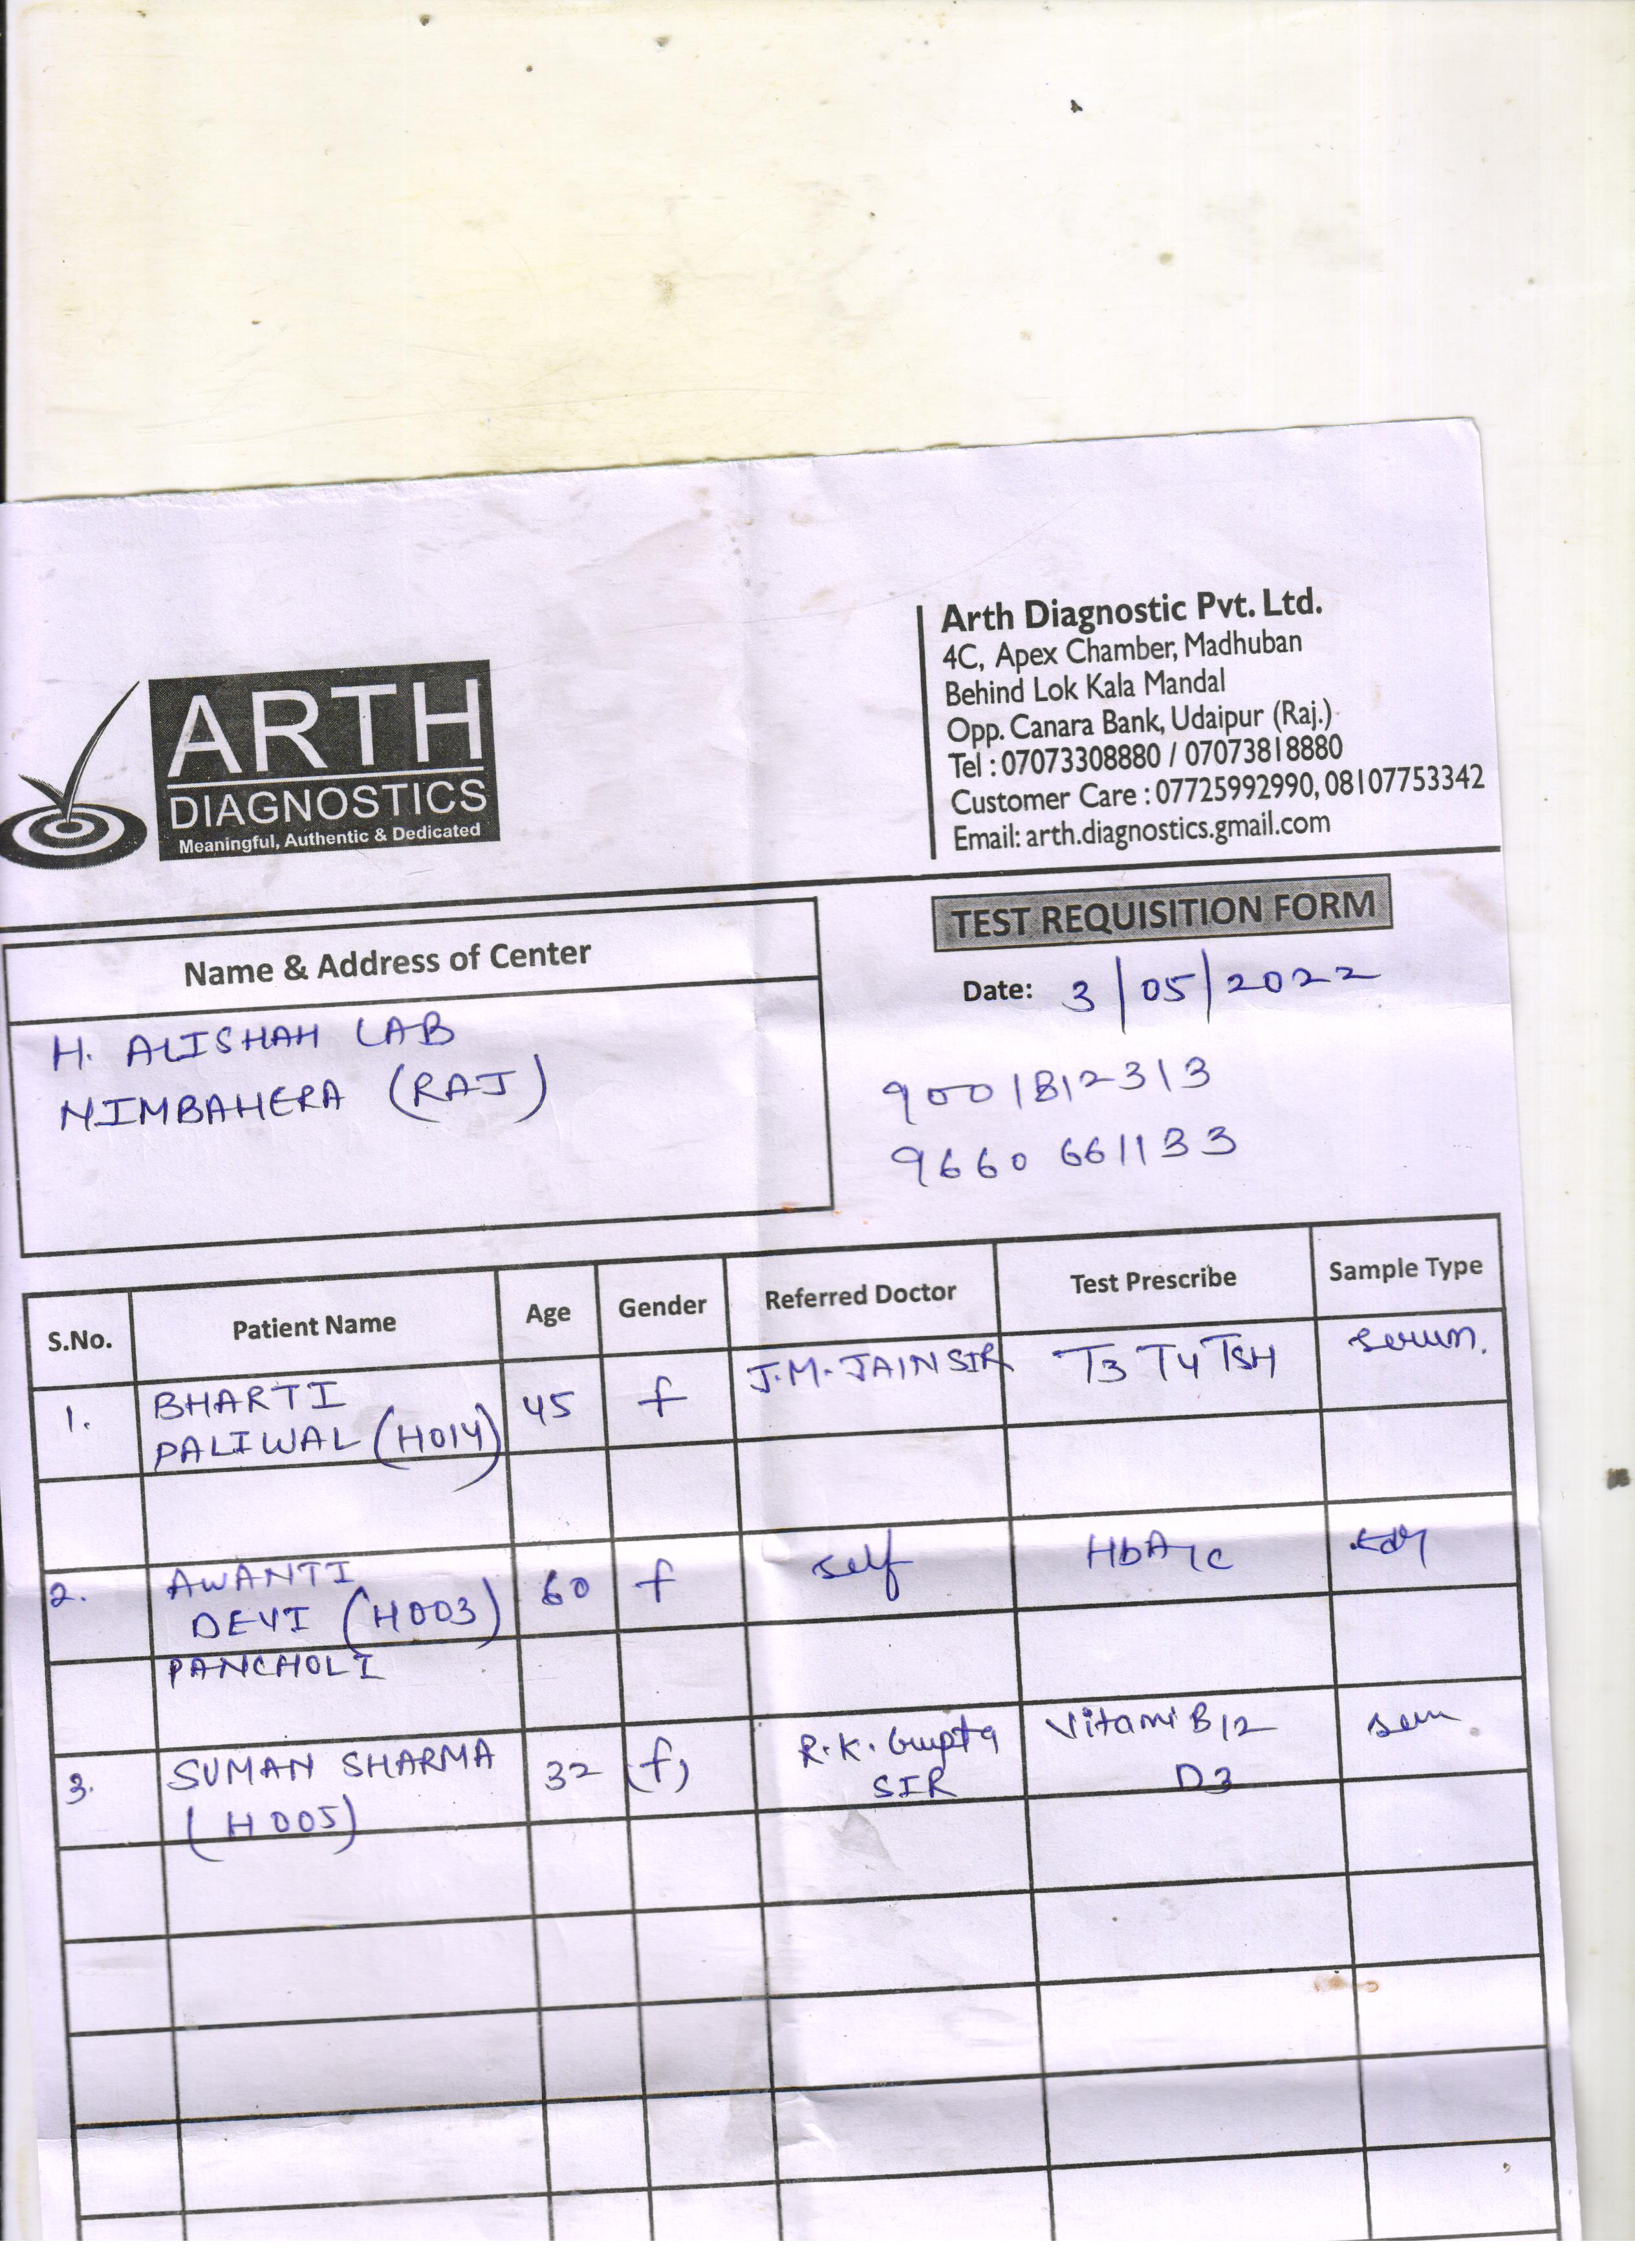 ARTH
DIAGNOSTICS
Meaningful, Authentic & Dedicated
Arth Diagnostic Pvt. Ltd.
4C, Apex Chamber, Madhuban
Behind Lok Kala Mandal
Opp. Canara Bank, Udaipur (Raj.)
Tel : 07073308880 / 07073818880
Customer Care : 07725992990, 08107753342
Email: arth.diagnostics.gmail.com
TEST REQUISITION FORM
Date: 3/05/2022
9001812313
9660661133
Name & Address of Center
H. ALISHAH LAB
NIMBAHERA (RAJ)
S.No. Patient Name Age Gender Referred Doctor Test Prescribe Sample Type
1. BHARTI 45 f J.M. JAIN SIR T3 T4 TSH serum.
PALIWAL (H014)
2. AWANTI 60 f self HbA1c
DEVI (H003)
PANCHOLI
3. SUMAN SHARMA 32 (f) R.K. Gupta Vitami B12
(H005) SIR D3